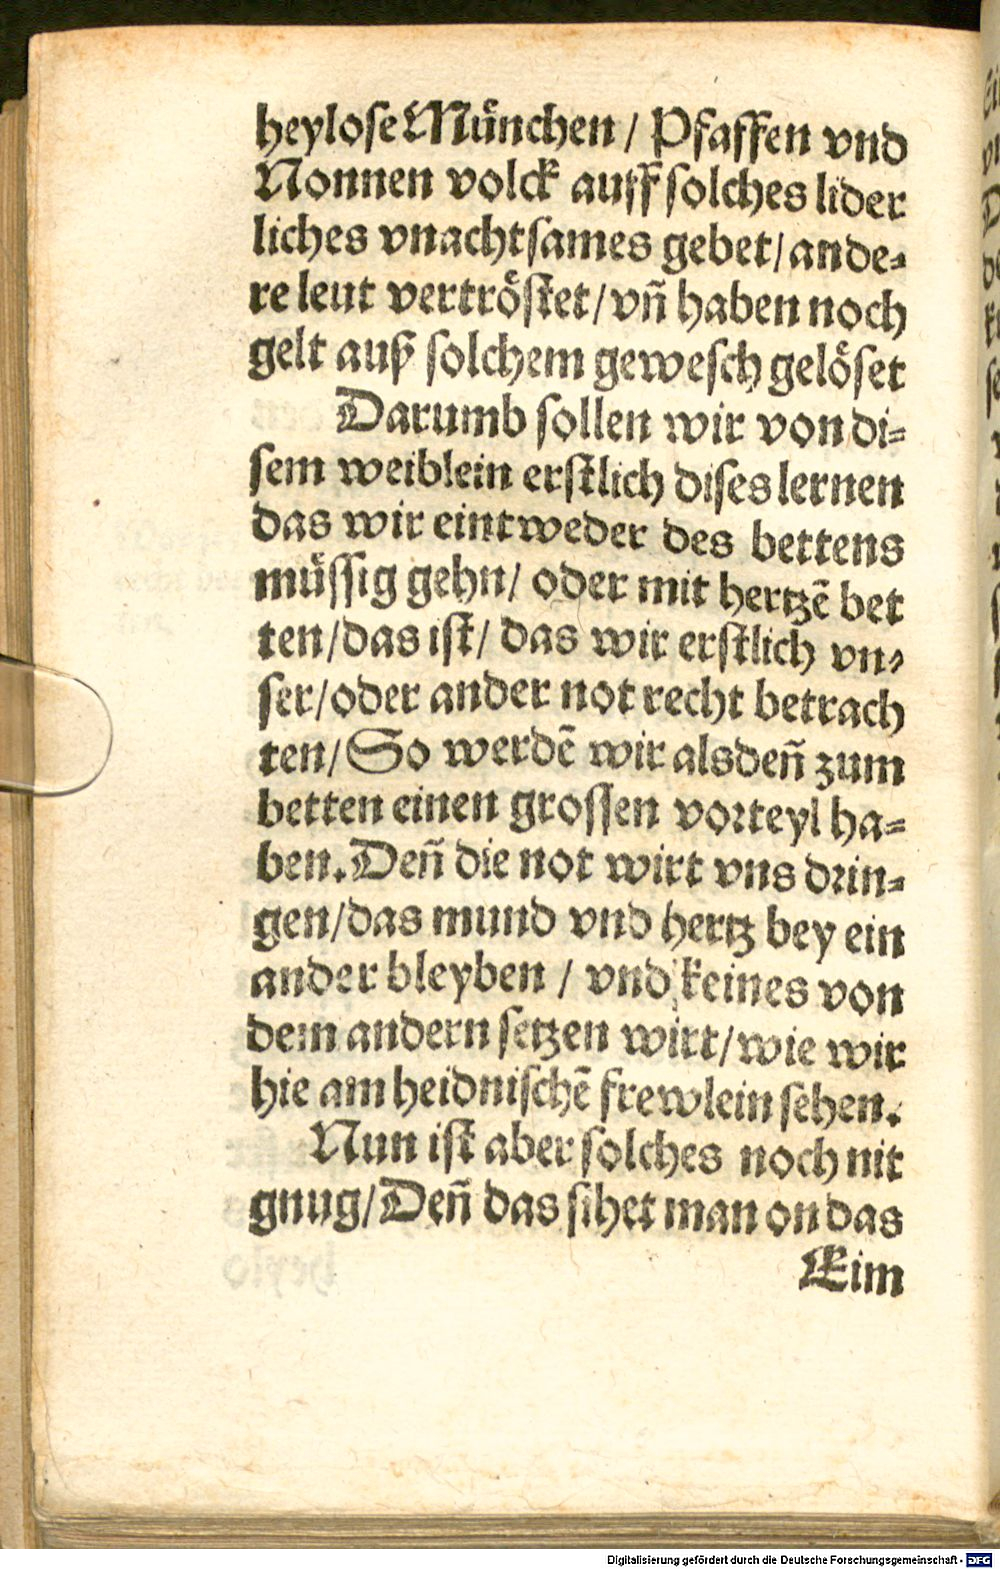 heylose München / Pfaffen vnd
Nonnen volck auff solches lider
liches vnachtsames gebet / ande⸗
re leut vertröstet / vñ haben noch
gelt auß solchem gewesch gelöset
Darumb sollen wir von di⸗
sem weiblein erstlich dises lernen
das wir eintweder des bettens
müssig gehn / oder mit hertzē bet
ten / das ist / das wir erstlich vn⸗
ser / oder ander not recht betrach
ten / So werdē wir alsdeñ zum
betten einen grossen vorteyl ha⸗
ben. Deñ die not wirt vns drin⸗
gen / das mund vnd hertz bey ein
ander bleyben / vnd keines von
dem andern setzen wirt / wie wir
hie am heidnischē frewlein sehen.
Nun ist aber solches noch nit
gnug / Deñ das sihet man on das
Eim
Digitalisierung gefördert durch die Deutsche Forschungsgemeinschaft - DFG